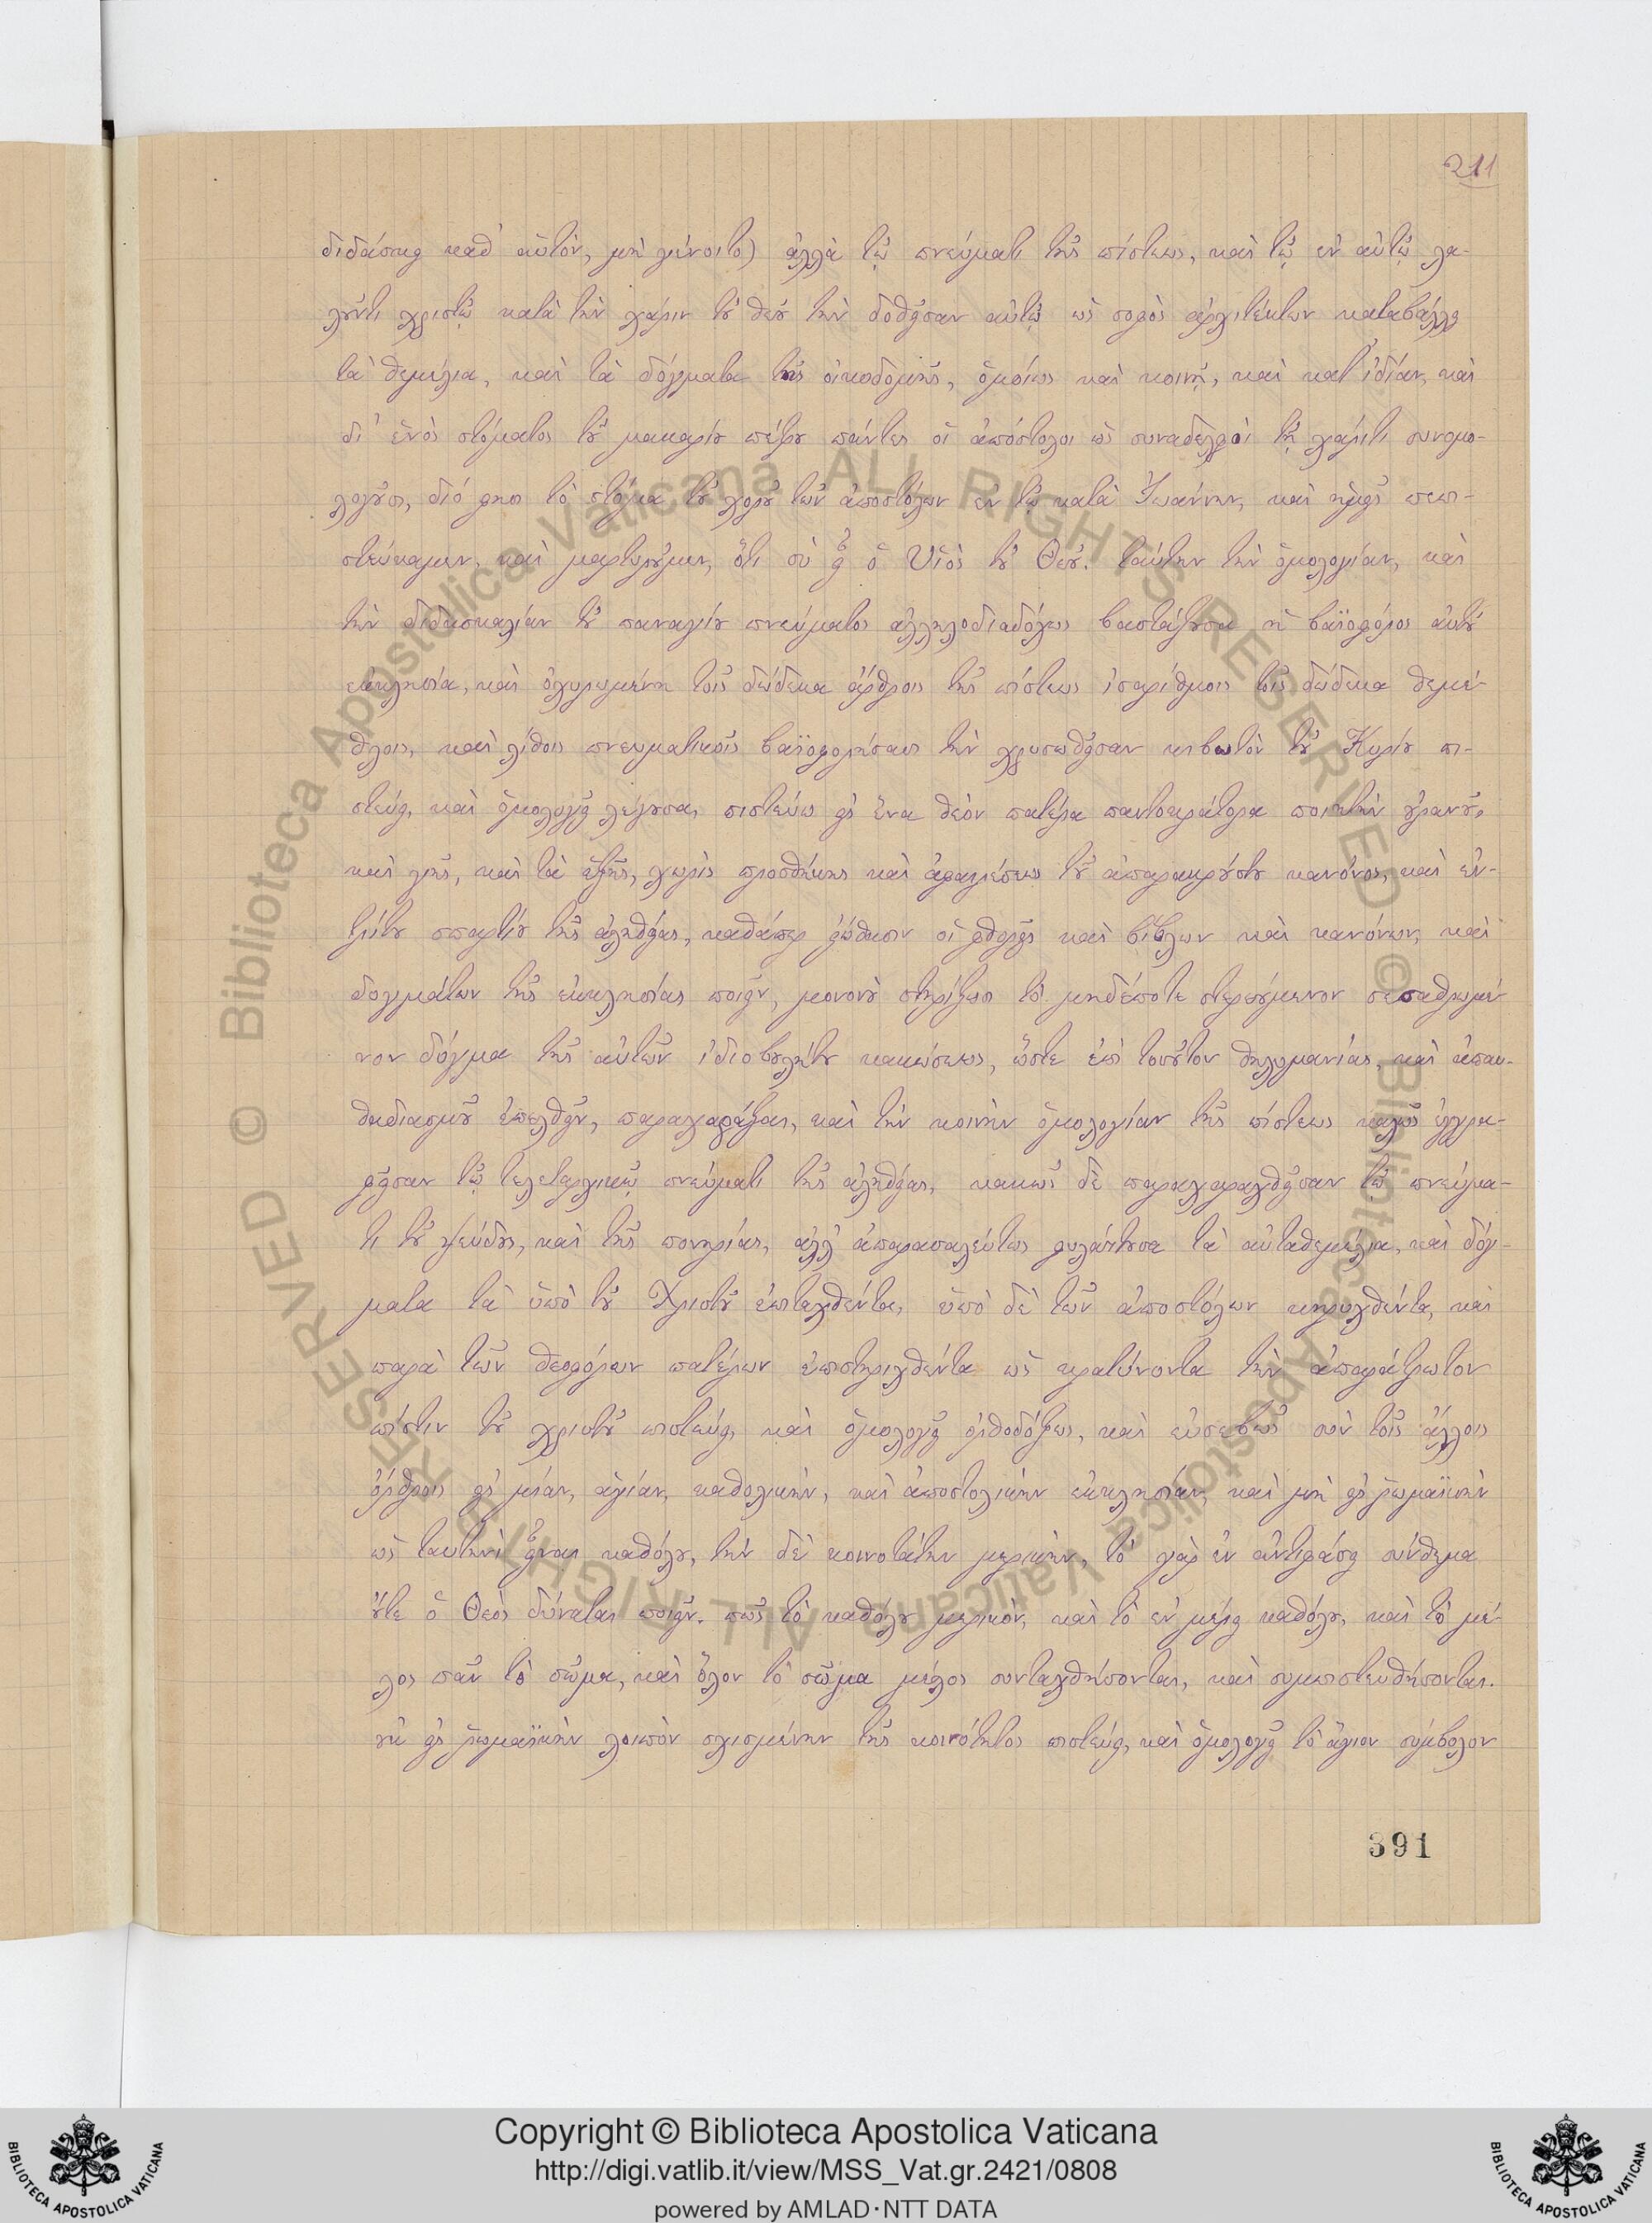 211
διδάσκει καθ' αὑτὸν, μὴ γένοιτο) ἀλλὰ τῷ πνεύματι τῆς πίστεως, καὶ τῷ ἐν αὐτῷ λα-
λοῦντι χριστῷ κατὰ τὴν χάριν τοῦ θεοῦ τὴν δοθεῖσαν αὐτῷ ὡς σοφὸς ἀρχιτέκτων καταβάλλει
τὰ θεμέλια, καὶ τὰ δόγματα τῆς οἰκοδομῆς, ὁμοίως καὶ κοινῇ, καὶ κατ' ἰδίαν, καὶ
δι' ἑνὸς στόματος τοῦ μακαρίου πέτρου πάντες οἱ ἀπόστολοι ὡς συναδελφοὶ τῇ χάριτι συνομο-
λογοῦσι, διό φησι τὸ στόμα τοῦ χοροῦ τῶν ἀποστόλων ἐν τῷ κατὰ Ἰωάννην, καὶ ἡμεῖς πεπι-
στεύκαμεν, καὶ μαρτυροῦμεν, ὅτι σὺ εἶ ὁ Υἱὸς τοῦ Θεοῦ. ταύτην τὴν ὁμολογίαν, καὶ
τὴν διδασκαλίαν τοῦ παναγίου πνεύματος ἀλληλοδιαδόχως βαστάζουσα ἡ βαϊοφόρος αὐτοῦ
ἐκκλησία, καὶ ὀχυρωμένη τοῖς δώδεκα ἄρθροις τῆς πίστεως ἰσαρίθμοις τοῖς δώδεκα θεμέ-
θλοις, καὶ λίθοις πνευματικοῖς βαϊοφορήσασι τὴν χρυσωθεῖσαν κιβωτὸν τοῦ Κυρίου πι-
στεύει, καὶ ὁμολογεῖ λέγουσα, πιστεύω εἰς ἕνα θεὸν πατέρα παντοκράτορα ποιητὴν οὐρανοῦ,
καὶ γῆς, καὶ τὰ ἑξῆς, χωρὶς προσθήκης καὶ ἀφαιρέσεως τοῦ ἀπαρακρούστου κανόνος, καὶ ἐν-
τρίτου σπαρτίου τῆς ἀληθείας, καθάπερ εἰώθασιν οἱ φθορεῖς καὶ βίβλων καὶ κανόνων, καὶ
δογμάτων τῆς ἐκκλησίας ποιεῖν, μονονοὺ στηρίξωσι τὸ μηδέποτε στερεούμενον σεσαθρωμέ-
νον δόγμα τῆς αὐτῶν ἰδιοβουλήτου κακώσεως, ὥστε ἐπὶ τοσοῦτον θηλυμανίας, καὶ ἀπαυ-
θαδιασμοῦ ἐπελθεῖν, παραχαράξαι, καὶ τὴν κοινὴν ὁμολογίαν τῆς πίστεως καλῶς ἐγγρα-
φεῖσαν τῷ τελεταρχικῷ πνεύματι τῆς ἀληθείας, κακῶς δὲ παραχαραχθεῖσαν τῷ πνεύμα-
τι τοῦ ψεύδους, καὶ τῆς πονηρίας, ἀλλ' ἀπαρασαλεύτως φυλάττουσα τὰ αὐταθεμέλια, καὶ δόγ-
ματα τὰ ὑπὸ τοῦ Χριστοῦ ἐπιταχθέντα, ὑπὸ δὲ τῶν ἀποστόλων κηρυχθέντα, καὶ
παρὰ τῶν θεοφόρων πατέρων ἐπιστηριχθέντα ὡς κρατύνοντα τὴν ἀπαράτρωτον
πίστιν τοῦ χριστοῦ πιστεύει, καὶ ὁμολογεῖ ὀρθοδόξως, καὶ εὐσεβῶς σὺν τοῖς ἄλλοις
ἄρθροις εἰς μίαν, ἁγίαν, καθολικὴν, καὶ ἀποστολικὴν ἐκκλησίαν, καὶ μὴ εἰς ῥωμαϊκὴν
ὡς ταυτηνὶ εἶναι καθόλου, τὴν δὲ κοινοτάτην μερικὴν, τὸ γὰρ ἐν ἀντιφάσει σύνθεμα
οὔτε ὁ Θεὸς δύναται ποιεῖν. πῶς τὸ καθόλου μερικὸν, καὶ τὸ ἐν μέρει καθόλου, καὶ τὸ μέ-
λος πᾶν τὸ σῶμα, καὶ ὅλον τὸ σῶμα μέλος συνταχθήσονται, καὶ συμπιστευθήσονται.
οὐκ εἰς ῥωμαϊκὴν λοιπὸν σχισμένην τῆς κοινότητος πιστεύει, καὶ ὁμολογεῖ τὸ ἅγιον σύμβολον
391
© Biblioteca Apostolica Vaticana ALL RIGHTS RESERVED
© Biblioteca Apostolica Vaticana ALL RIGHTS RESERVED
BIBLIOTECA APOSTOLICA VATICANA
Copyright © Biblioteca Apostolica Vaticana
http://digi.vatlib.it/view/MSS_Vat.gr.2421/0808
powered by AMLAD·NTT DATA
BIBLIOTECA APOSTOLICA VATICANA